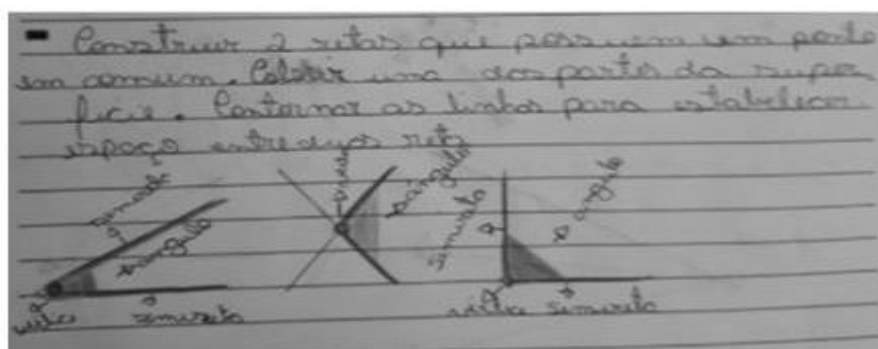 - Construir 2 retas que possuem um ponto
em comum. Colorir uma das partes da super
ficie. Contornar as linhas para estabelecer
espaço entre duas retas
semireta
ângulo
semireta
ângulo
semireta
ângulo
semireta